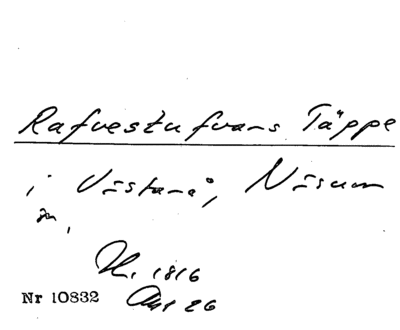 Rafvestufvans Täppe
i Västanå, Näsum
sn,
H. 1816
Nr 10832 Akt 26